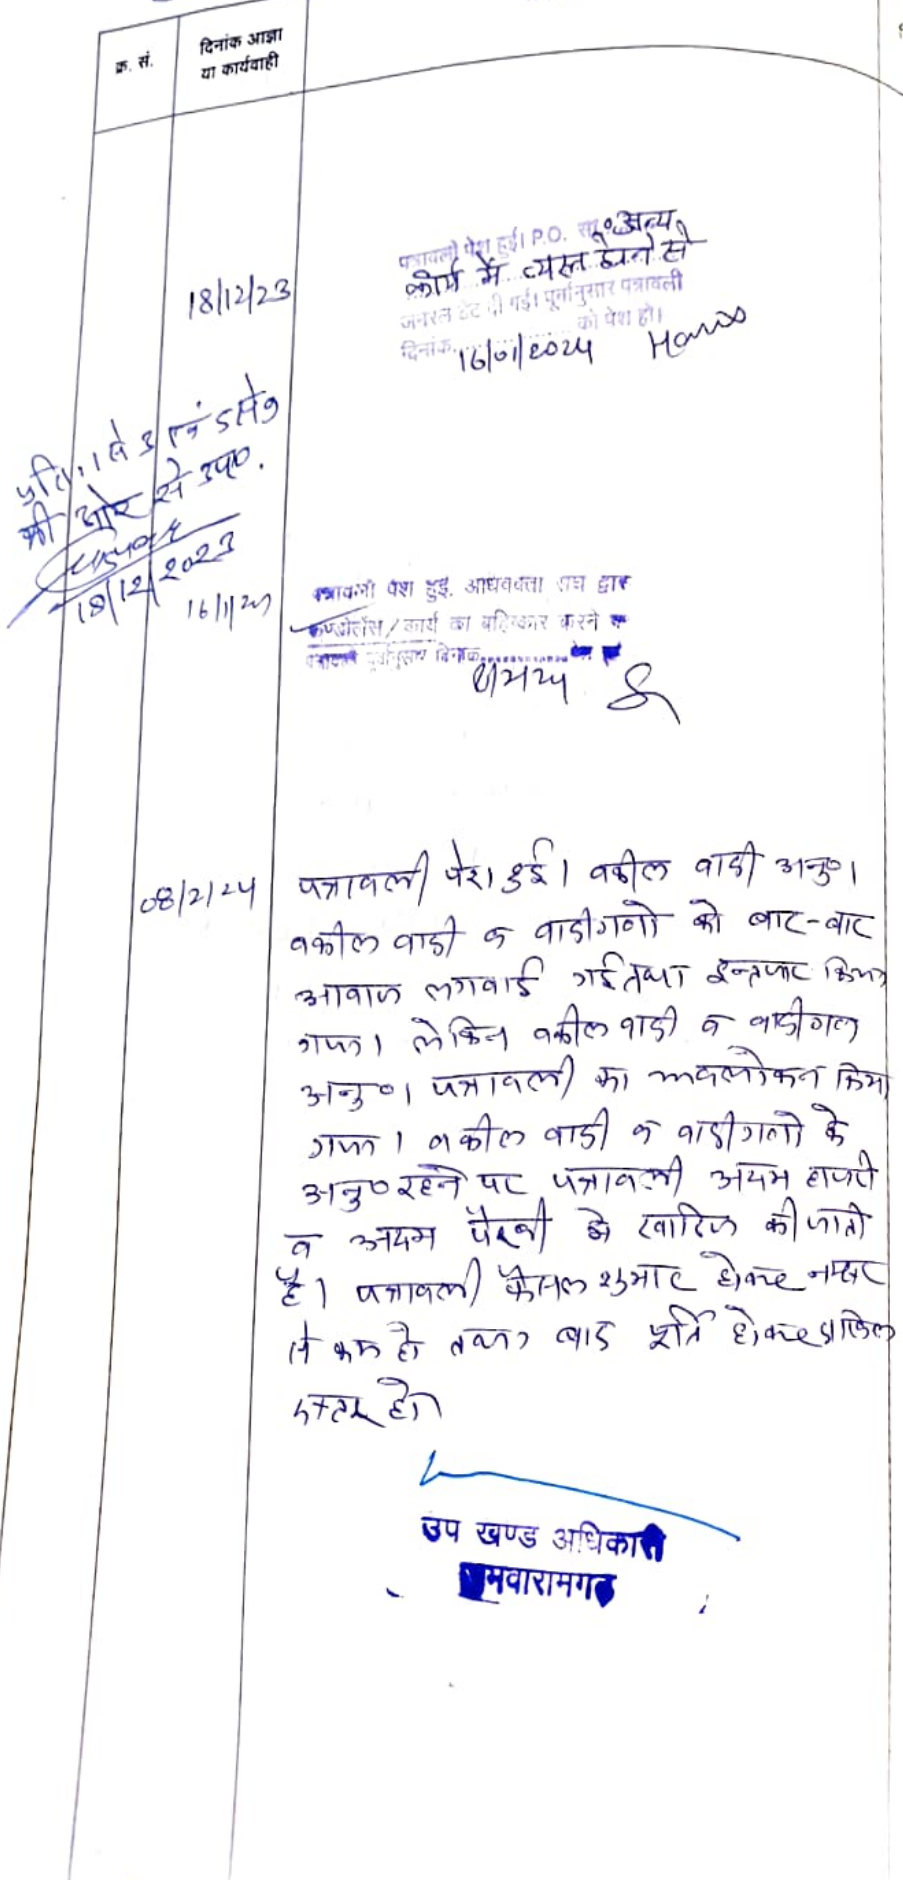 क्र. सं.
दिनांक आज्ञा
या कार्यवाही
18/12/23
पत्रावली पेश हुई। P.O. सा० अन्य
कार्य में व्यस्त होने से
जनरल डेट दी गई। पूर्वानुसार पत्रावली
दिनांक 16/01/2024 को पेश हो।
प्रति. 1 से 3 एवं 5 से 9
की ओर से उप०.
18/12/2023
16/1/24
पत्रावली पेश हुई. अधिवक्ता संघ द्वारा
कण्डोलेंस/कार्य का बहिष्कार करने से
पत्रावली पूर्वानुसार दिनांक
08/2/24
पत्रावली पेश हुई। वकील वादी अनु०।
वकील वादी व वादीगणो को बार-बार
आवाज लगवाई गई तथा इन्तजार किया
गया। लेकिन वकील वादी व वादीगण
अनु०। पत्रावली का अवलोकन किया
गया। वकील वादी व वादीगणो के
अनु० रहने पर पत्रावली अदम हाजरी
व अदम पैरवी मे खारिज की जाती
है। पत्रावली फैसल शुमार होकर नम्बर
से कम हो तथा बाद पूर्ति होकर दाखिल
दफ्तर हो।
उप खण्ड अधिकारी
जमवारामगढ